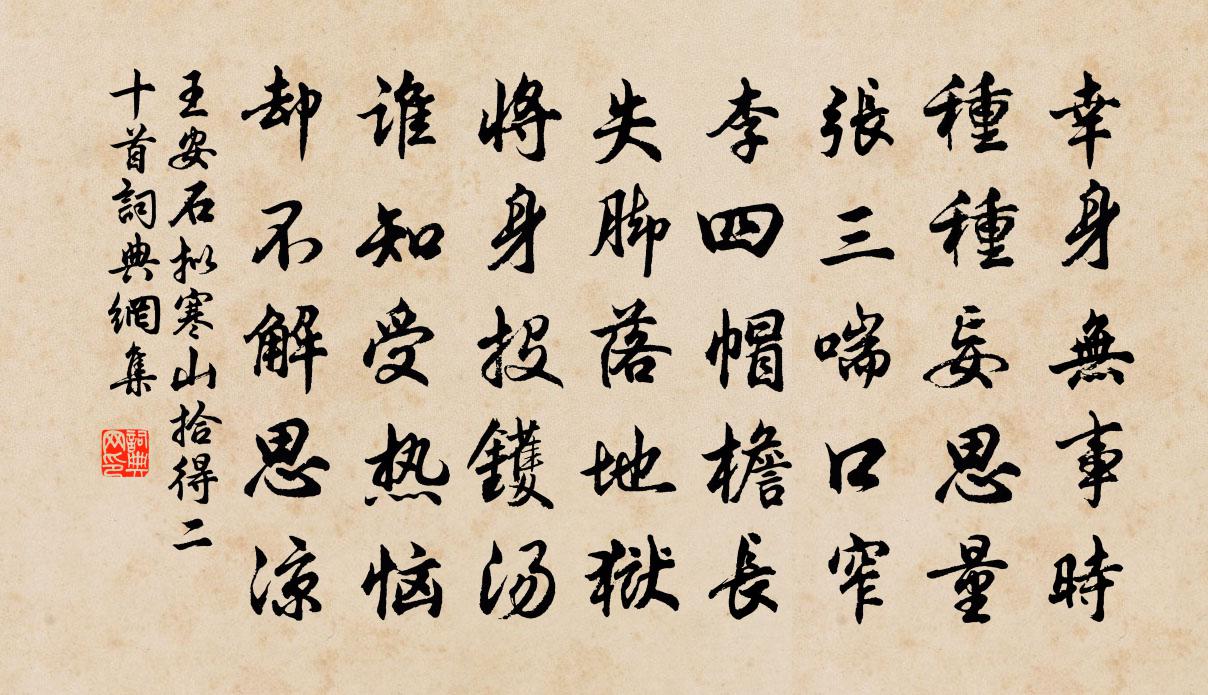 幸身無事時
種種妄思量
張三喘口窄
李四帽檐長
失脚落地獄
將身投鑊湯
谁知受热恼
却不解思凉
王安石拟寒山拾得二
十首詞典網集
詞典
网印